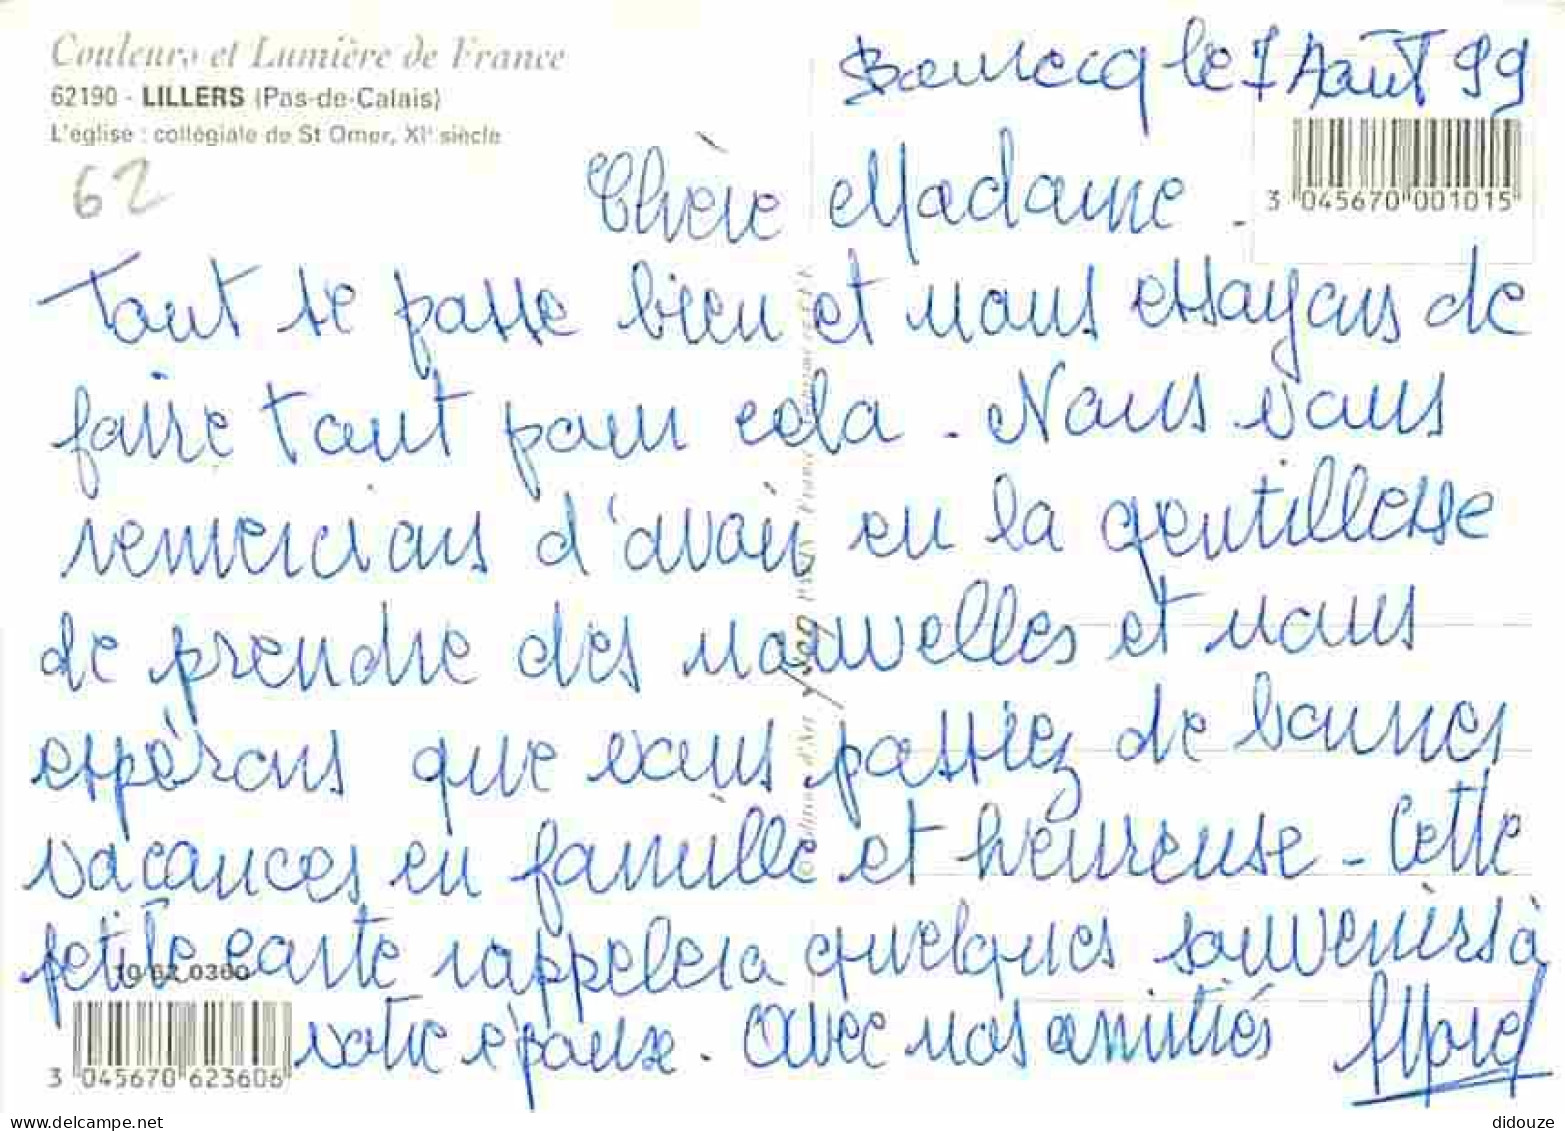 Couleurs et Lumière de France
62190 - LILLERS (Pas-de-Calais)
L'église : collégiale de St Omer, XIe siècle
62
Bourecq le 7 Août 99
3 045670 001015
Chère Madame.
Tout se passe bien et nous essayons de
faire tout pour cela. Nous vous
remercions d'avoir eu la gentillesse
de prendre des nouvelles et nous
espérons que vous passiez de bonnes
vacances en famille et heureuse - Cette
petite carte rappelera quelques souvenirs à
votre épouse. Avec nos amitiés
10 62 0360
3 045670 623606
delcampe.net
didouze